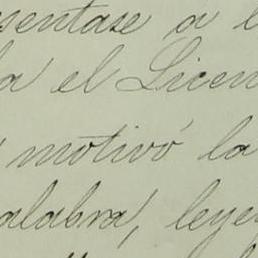 sentase a e
a el Licen
motivó la
alabra, leye